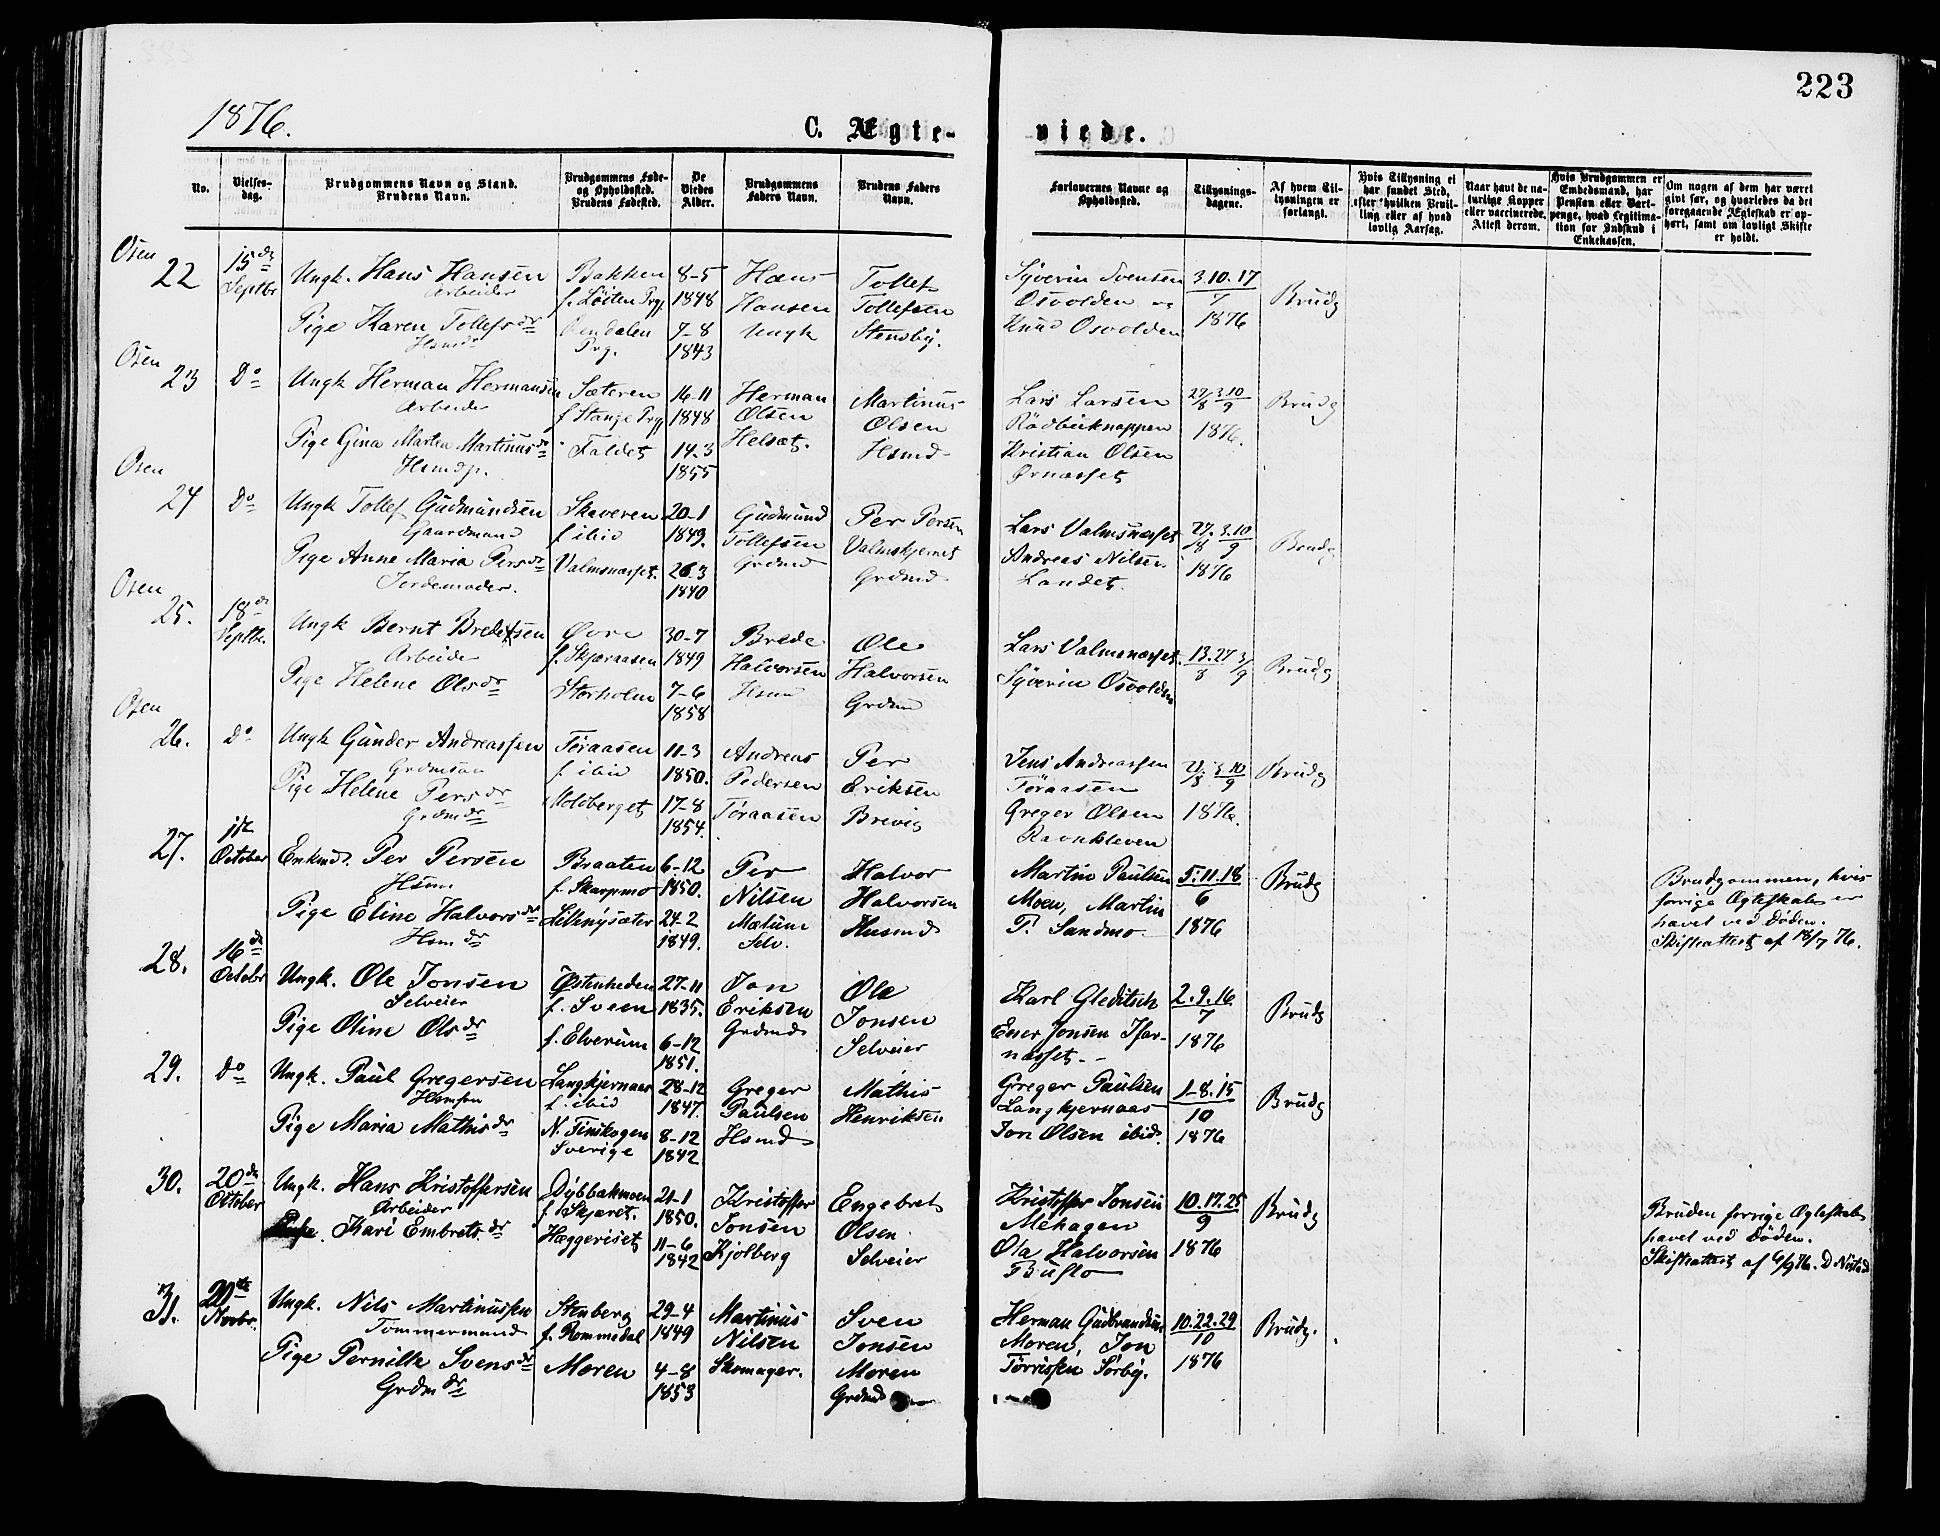 223
1876.
C. Ægte-
viede.
No.
Vielses-
dag.
Brudgommens Navn og Stand.
Brudens Navn.
Brudgommens Føde-
og Opholdssted.
Brudens Fødested.
De
Viedes
Alder.
Brudgommens
Faders Navn.
Brudens Faders
Navn.
Forlovernes Navne og
Opholdssted.
Tillysnings-
dagene.
Af hvem Til-
lysningen er
forlangt.
Hvis Tillysning ei
har fundet Sted,
efter hvilken Bevil-
ling eller af hvad
lovlig Aarsag.
Naar havt de na-
turlige Kopper
eller vaccinerede.
Attest derom.
Hvis Brudgommen er
Embedsmand, har
Pension eller Vart-
penge, hvad Legitima-
tion for Indskud i
Enkekassen.
Om nogen af dem har været
gift før, og hvorledes da det
foregaaende Ægteskab er op-
hørt, samt om lovligt Skifte
er holdt.
Osen
22
15de
Septbr
Ungk. Hans Hansen
Arbeider
Pige Karen Tollefsdr
Hsmdr
Bakken
f. Løiten Prg.
Prg.
8-5
1848
7-8
1843
Hans
Hansen
Ungk
Tollef
Tollefsen
Stensby.
Syverin Svensen
Osvolden og
Knud Osvolden
3.10.17
7
1876
Brudg
Osen
23
Do
Ungk Herman Hermansen
Arbeider
Pige Gina Martea Martinusdr
Hsmdp.
Sæteren
f Stange Prg
Faldet
16-11
1848
14-3
1855
Herman
Olsen
Helset.
Martinus
Olsen
Hsmd
Lars Larsen
Rødbæknappen
Kristian Olsen
Ørnæsset
27/8 3.10/9
1876.
Brudg
Osen
24
Do
Ungk Tollef Gudmundsen
Gaardmand
Pige Anne Maria Persdr
Jordemoder.
Skaveren
f. ibid
Valmsnæsset.
20-1
1849.
26-3
1840
Gudmund
Tollefsen
Grdmd
Per Persen
Valmskjernet
Grdmd
Lars Valmsnæsset
Andreas Nilsen
Landet.
27/8 3.10/9
1876
Brudg
Osen
25.
18de
Septbr.
Ungk Bernt Bredesen
Arbeider
Pige Helene Olsdr
Øvre
f. Skjæraasen
Storholm
30-7
1849
7-6
1858
Brede
Halvorsen
Hsmd
Ole
Halvorsen
Grdmd
Lars Valmsnæsset
Syverin Osvolden
13.27/8 3/9
Brudg
Osen
26.
Do
Ungk Gunder Andreassen
Grdmsøn
Pige Helene Persdr
Grdmdr
Tøraasen
f. ibid
Moldberget
11-3
1850.
17-8
1854.
Andreas
Pedersen
Tøraasen
Per
Eriksen
Brevig
Jens Andreassen
Tøraasen
Greger Olsen
Ravnkleven
27/8 3.10/9
1876.
Brudg
27.
1ste
October
Enkmd. Per Persen
Hsmd
Pige Eline Halvorsdr
Hsmdr
Braaten
f. Skarpmo
Lillenysæter
6-12
1850.
24-2
1849.
Per
Nilsen
Mælum
Selv.
Halvor
Halvorsen
Husmd
Martin Paulsen
Moen, Martin
P. Sandmo
5.11.18
6
1876
Brudg
Brudgommen, hvis
forrige Ægteskab er
hævet ved Døden.
Skifteattest af 18/7 76.
28.
16de
Octobr
Ungk. Ole Jonsen
Selveier
Pige Oline Olsdr
Østenheden
f. Sveen
f. Elverum
27-11
1835.
6-12
1851.
Jon
Eriksen
Grdmd
Ole
Jonsen
Selveier
Karl Gleditsch
Ener Jonsen Ifar-
næsset
2.9.16
7
1876
Brudg
29.
Do
Ungk. Paul Gregersen
Hsmsøn
Pige Maria Mathisdr
Langkjernaas
f. ibid
N. Finskogen
Sverige
28-12
1847.
8-12
1842
Greger
Paulsen
Hsmd
Mathis
Henriksen
Greger Paulsen
Langkjernaas
Jon Olsen ibid.
1-8.15
10
1876
Brudg
30.
20de
October
Ungk. Hans Kristoffersen
Arbeider
Kari Embretsdr
Dybbakmoen
f. Skjæret.
Hæggeriset
21-1
1850.
11-6
1842
Kristoffer
Jonsen
Kjølberg
Engebret
Olsen
Selveier
Kristoffer Jonsen
Mehagen
Ola Halvorsen
Buflo
10.17.25
9
1876
Brudg
Bruden forrige Ægteskab
hævet ved Døden.
Skifteattest af 6/9 76.
31.
20de
Novbr.
Ungk. Nils Martinussen
Tømmermand
Pige Pernille Svensdr
Grdmdr
Stenberg
f. Romsdal
Moren
29-4
1849
4-8
1853
Martinus
Nilsen
Skomager.
Sven
Jonsen
Moren
Grdmd
Herman Gudbrandsen
Moren, Jon
Tørrissen Sørby.
10.22.29
10
1876
Brudg.